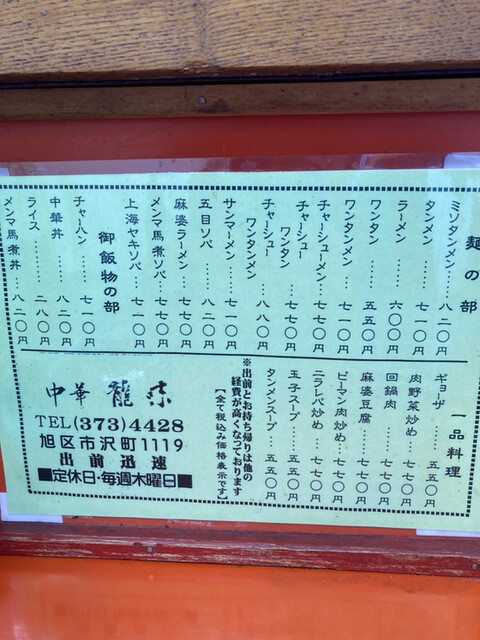 麺の部
ミソタンメン…八二〇円
タンメン……七一〇円
ラーメン……六〇〇円
ワンタン……五五〇円
ワンタンメン…七一〇円
チャーシューメン…七七〇円
チャーシュー
ワンタン…七七〇円
チャーシュー
ワンタンメン…八八〇円
サンマーメン…七一〇円
五目ソバ……八二〇円
麻婆ラーメン…七七〇円
メンマ馬煮ソバ…七七〇円
上海ヤキソバ…七一〇円
御飯物の部
チャーハン……七一〇円
中華丼………八二〇円
ライス………二八〇円
メンマ馬煮丼…八二〇円
一品料理
ギョーザ……五五〇円
肉野菜炒め…七七〇円
回鍋肉………七七〇円
麻婆豆腐……七七〇円
ピーマン肉炒め…七七〇円
ニラレバ炒め…七七〇円
玉子スープ…五五〇円
タンメンスープ…五五〇円
※出前とお持ち帰りは他の
経費が高くなっております
【全て税込み価格表示です】
中華 龍
TEL(373)4428
旭区市沢町1119
出前迅速
■定休日・毎週木曜日■